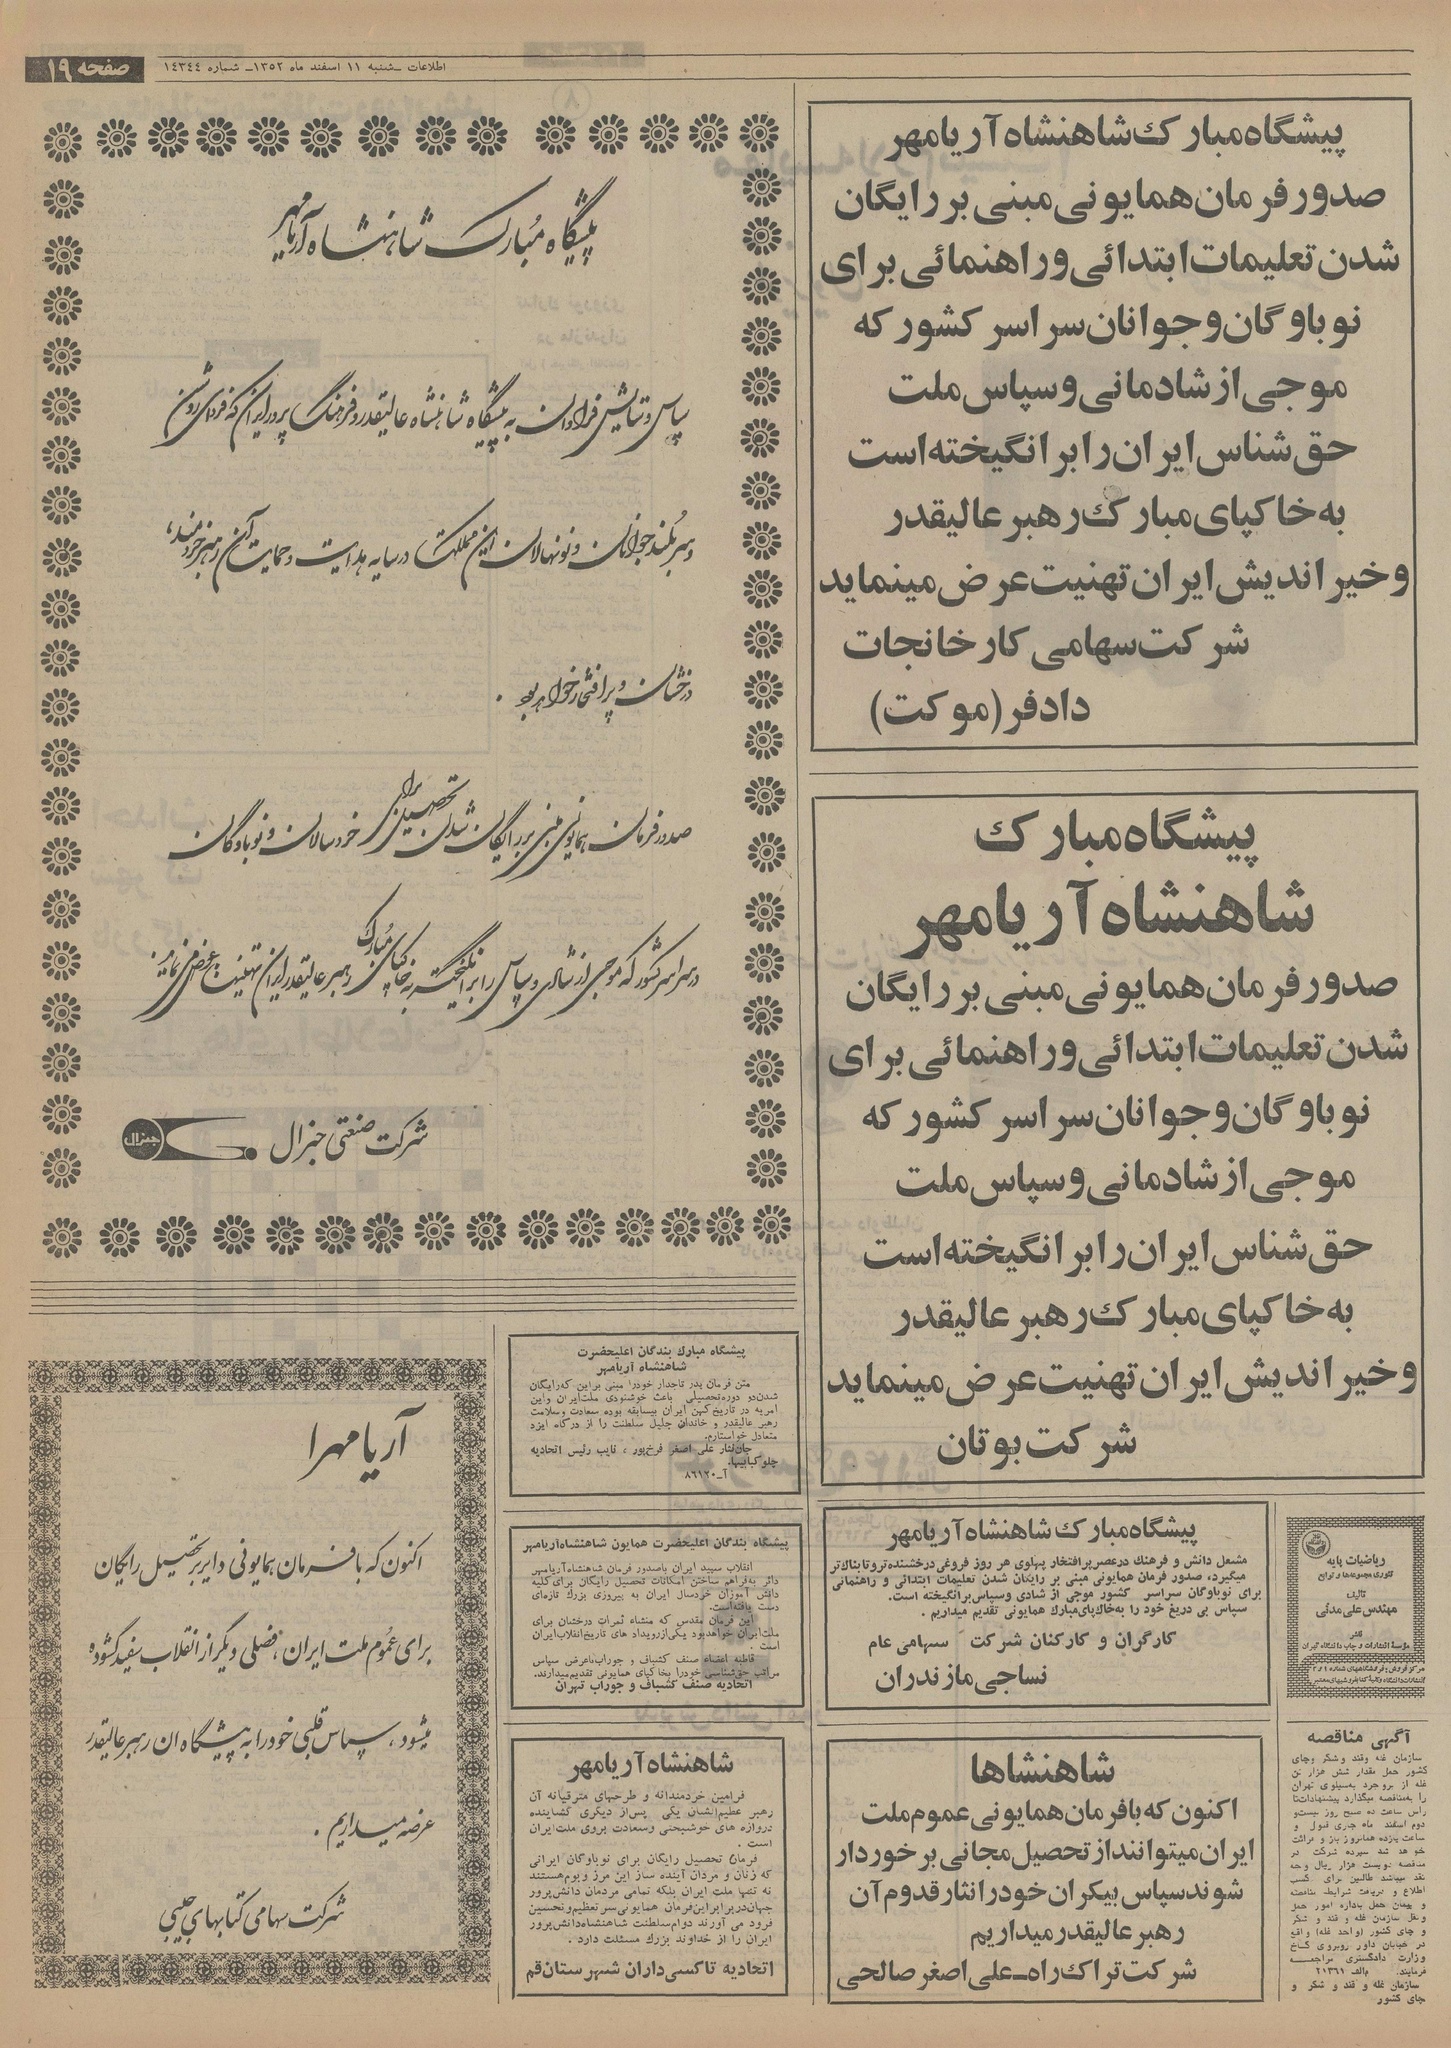 صفحه ۱۹
اطلاعات ـ شنبه ۱۱ اسفند ماه ۱۳۵۲ـ شماره ۱۴۳۴۴
پیشگاه مبارك شاهنشاه آریامهر
صدور فرمان همایونی مبنی بر رایگان
شدن تعلیمات ابتدائی و راهنمائی برای
نوباوگان و جوانان سراسر کشور که
موجی از شادمانی و سپاس ملت
حق شناس ایران را برانگیخته است
به خاکپای مبارك رهبر عالیقدر
و خیراندیش ایران تهنیت عرض مینماید
شرکت سهامی کارخانجات
دادفر (موکت)
پیشگاه مبارك
شاهنشاه آریامهر
صدور فرمان همایونی مبنی بر رایگان
شدن تعلیمات ابتدائی و راهنمائی برای
نوباوگان و جوانان سراسر کشور که
موجی از شادمانی و سپاس ملت
حق شناس ایران را برانگیخته است
به خاکپای مبارك رهبر عالیقدر
و خیراندیش ایران تهنیت عرض مینماید
شرکت بوتان
پیشگاه مبارک شاهنشاه آریامهر
سپاس و ستایش فراوان به پیشگاه شاهنشاه عالیقدر و فرهنگ پرور ایران که فردای روشن
و سربلند جوانان و نونهالان این مملکت در سایه هدایت و حمایت آن رهبر خردمند،
درخشان و پر افتخار خواهد بود .
صدور فرمان همایونی مبنی بر رایگان شدن تحصیل برای خردسالان و نوباوگان
در سراسر کشور که موجی از شادی و سپاس را برانگیخته به خاکپای مبارک رهبر عالیقدر ایران تهنیت عرض می نماید.
شرکت صنعتی جنرال
جنرال
پیشگاه مبارك شاهنشاه آریامهر
مشعل دانش و فرهنك در عصر پرافتخار پهلوی هر روز فروغی درخشنده تر و تابناك تر
میگیرد، صدور فرمان همایونی مبنی بر رایگان شدن تعلیمات ابتدائی و راهنمائی
برای نوباوگان سراسر کشور موجی از شادی و سپاس برانگیخته است.
سپاس بی دریغ خود را به خاك پای مبارك همایونی تقدیم میداریم .
کارگران و کارکنان شرکت سهامی عام
نساجی مازندران
شاهنشاها
اکنون که بافرمان همایونی عموم ملت
ایران میتوانند از تحصیل مجانی برخوردار
شوند سپاس بیکران خود را نثار قدوم آن
رهبر عالیقدر میداریم
شرکت تراك راه ـ علی اصغر صالحی
ریاضیات پایه
تئوری مجموعه‌ها و توابع
تألیف
مهندس علی مدنی
ناشر
مؤسسه انتشارات و چاپ دانشگاه تهران
آگهی مناقصه
سازمان غله و قند و شکر و چای
کشور حمل مقدار شش هزار تن
غله از بروجرد به سیلوی تهران
را به مناقصه میگذارد پیشنهادات تا
راس ساعت ده صبح روز بیست و
دوم اسفند ماه جاری قبول و
ساعت یازده همانروز باز و قرائت
خواهد شد سپرده شرکت در
مناقصه دویست هزار ریال وجه
نقد میباشد طالبین برای کسب
اطلاع و دریافت شرایط مناقصه
و پیمان حمل باداره امور حمل
و نقل سازمان غله و قند و شکر
و چای کشور (واحد غله) واقع
در خیابان داور روبروی کاخ
وزارت دادگستری مراجعه
فرمایند. م‌الف ۲۱۳۶۱
سازمان غله و قند و شکر و
چای کشور
پیشگاه مبارك بندگان اعلیحضرت
شاهنشاه آریامهر
متن فرمان پدر تاجدار خود را مبنی براین که رایگان
شدن دو دوره تحصیلی باعث خوشنودی ملت ایران و این
امریه در تاریخ کهن ایران بیسابقه بوده سعادت و سلامت
رهبر عالیقدر و خاندان جلیل سلطنت را از درگاه ایزد
متعادل خواستارم.
جان نثار علی اصغر فرخ پور ، نایب رئیس اتحادیه
چلوکبابیها.
آ ـ ۸۶۱۲۰
پیشگاه بندگان اعلیحضرت همایون شاهنشاه آریامهر
انقلاب سپید ایران باصدور فرمان شاهنشاه آریامهر
دائر به فراهم ساختن امکانات تحصیل رایگان برای کلیه
دانش آموزان خردسال ایران به پیروزی بزرك تازه‌ای
دست یافته است.
این فرمان مقدس که منشاء ثمرات درخشان برای
ملت ایران خواهد بود یکی از رویداد های تاریخ انقلاب ایران
است .
قاطبه اعضاء صنف کشباف و جوراب با عرض سپاس
مراتب حق شناسی خود را بخاکپای همایونی تقدیم میدارند.
اتحادیه صنف کشباف و جوراب تهران
شاهنشاه آریامهر
فرامین خردمندانه و طرحهای مترقیانه آن
رهبر عظیم الشان یکی پس از دیگری گشاینده
دروازه های خوشبختی و سعادت بروی ملت ایران
است .
فرمان تحصیل رایگان برای نوباوگان ایرانی
که زنان و مردان آینده ساز این مرز و بوم هستند
نه تنها ملت ایران بلکه تمامی مردمان دانش پرور
جهان در برابر این فرمان همایونی سر تعظیم و تحسین
فرود می آورند دوام سلطنت شاهنشاه دانش پرور
ایران را از خداوند بزرك مسئلت دارد .
اتحادیه تاکسی داران شهرستان قم
آریامهرا
اکنون که با فرمان همایونی دایر بر تحصیل رایگان
برای عموم ملت ایران، فصلی دیگر از انقلاب سفید گشوده
میشود، سپاس قلبی خود را به پیشگاه آن رهبر عالیقدر
عرضه میداریم .
شرکت سهامی کتابهای جیبی